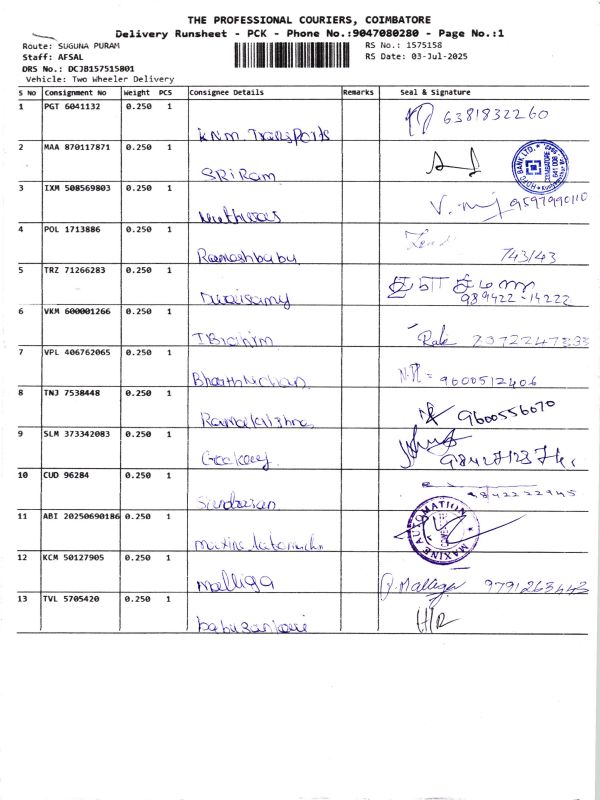 THE PROFESSIONAL COURIERS, COIMBATORE
Delivery Runsheet - PCK - Phone No.:9047080280 - Page No.:1
Route: SUGUNA PURAM
RS No.: 1575158
Staff: AFSAL
RS Date: 03-Jul-2025
DRS No.: DCJB157515801
Vehicle: Two Wheeler Delivery
S No Consignment No Weight PCS Consignee Details Remarks Seal & Signature
1 PGT 6041132 0.250 1 K.N.M. Transports 6381832260
2 MAA 870117871 0.250 1 SRIRam
3 IXM 508569803 0.250 1 9597990110
4 POL 1713886 0.250 1 Rameshbabu 743/43
5 TRZ 71266283 0.250 1 Duraisamy 989422-14222
6 VKM 600001266 0.250 1 IBrahim
7 VPL 406762065 0.250 1 9600512406
8 TNJ 7538448 0.250 1 Ramakrishna 9600556070
9 SLM 373342083 0.250 1
10 CUD 96284 0.250 1 9842222945
11 ABI 20250690186 0.250 1 MAXINE AUTOMATION
12 KCM 50127905 0.250 1 Malliga Malliga 9791263443
13 TVL 5705420 0.250 1